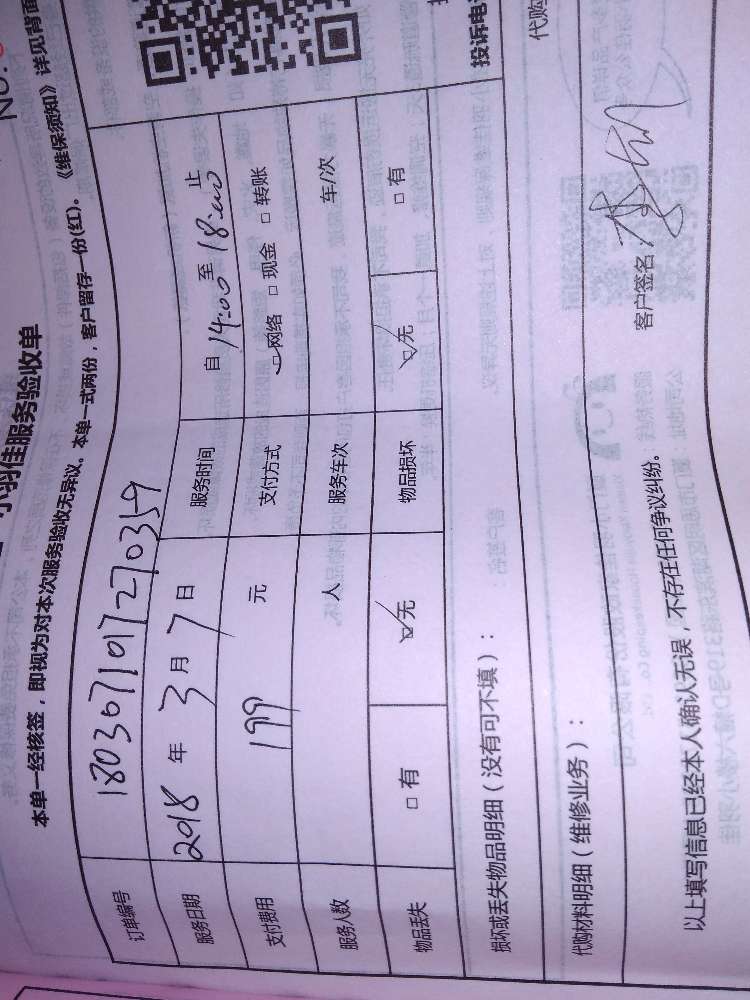 NO.
小羽佳服务验收单
本单一经核签，即视为对本次服务验收无异议。本单一式两份，客户留存一份(红)。《维保须知》详见背面
订单编号 1803071017270359
服务日期 2018 年 3 月 7 日 服务时间 自 14:00 至 18:00 止
支付费用 199 元 支付方式 ☑网络 □现金 □转账
服务人数 人 服务车次 车/次
物品丢失 □有 ☑无 物品损坏 ☑无 □有
损坏或丢失物品明细（没有可不填）：
投诉电
代购材料明细（维修业务）：
代购
以上填写信息已经本人确认无误，不存在任何争议纠纷。 客户签名：